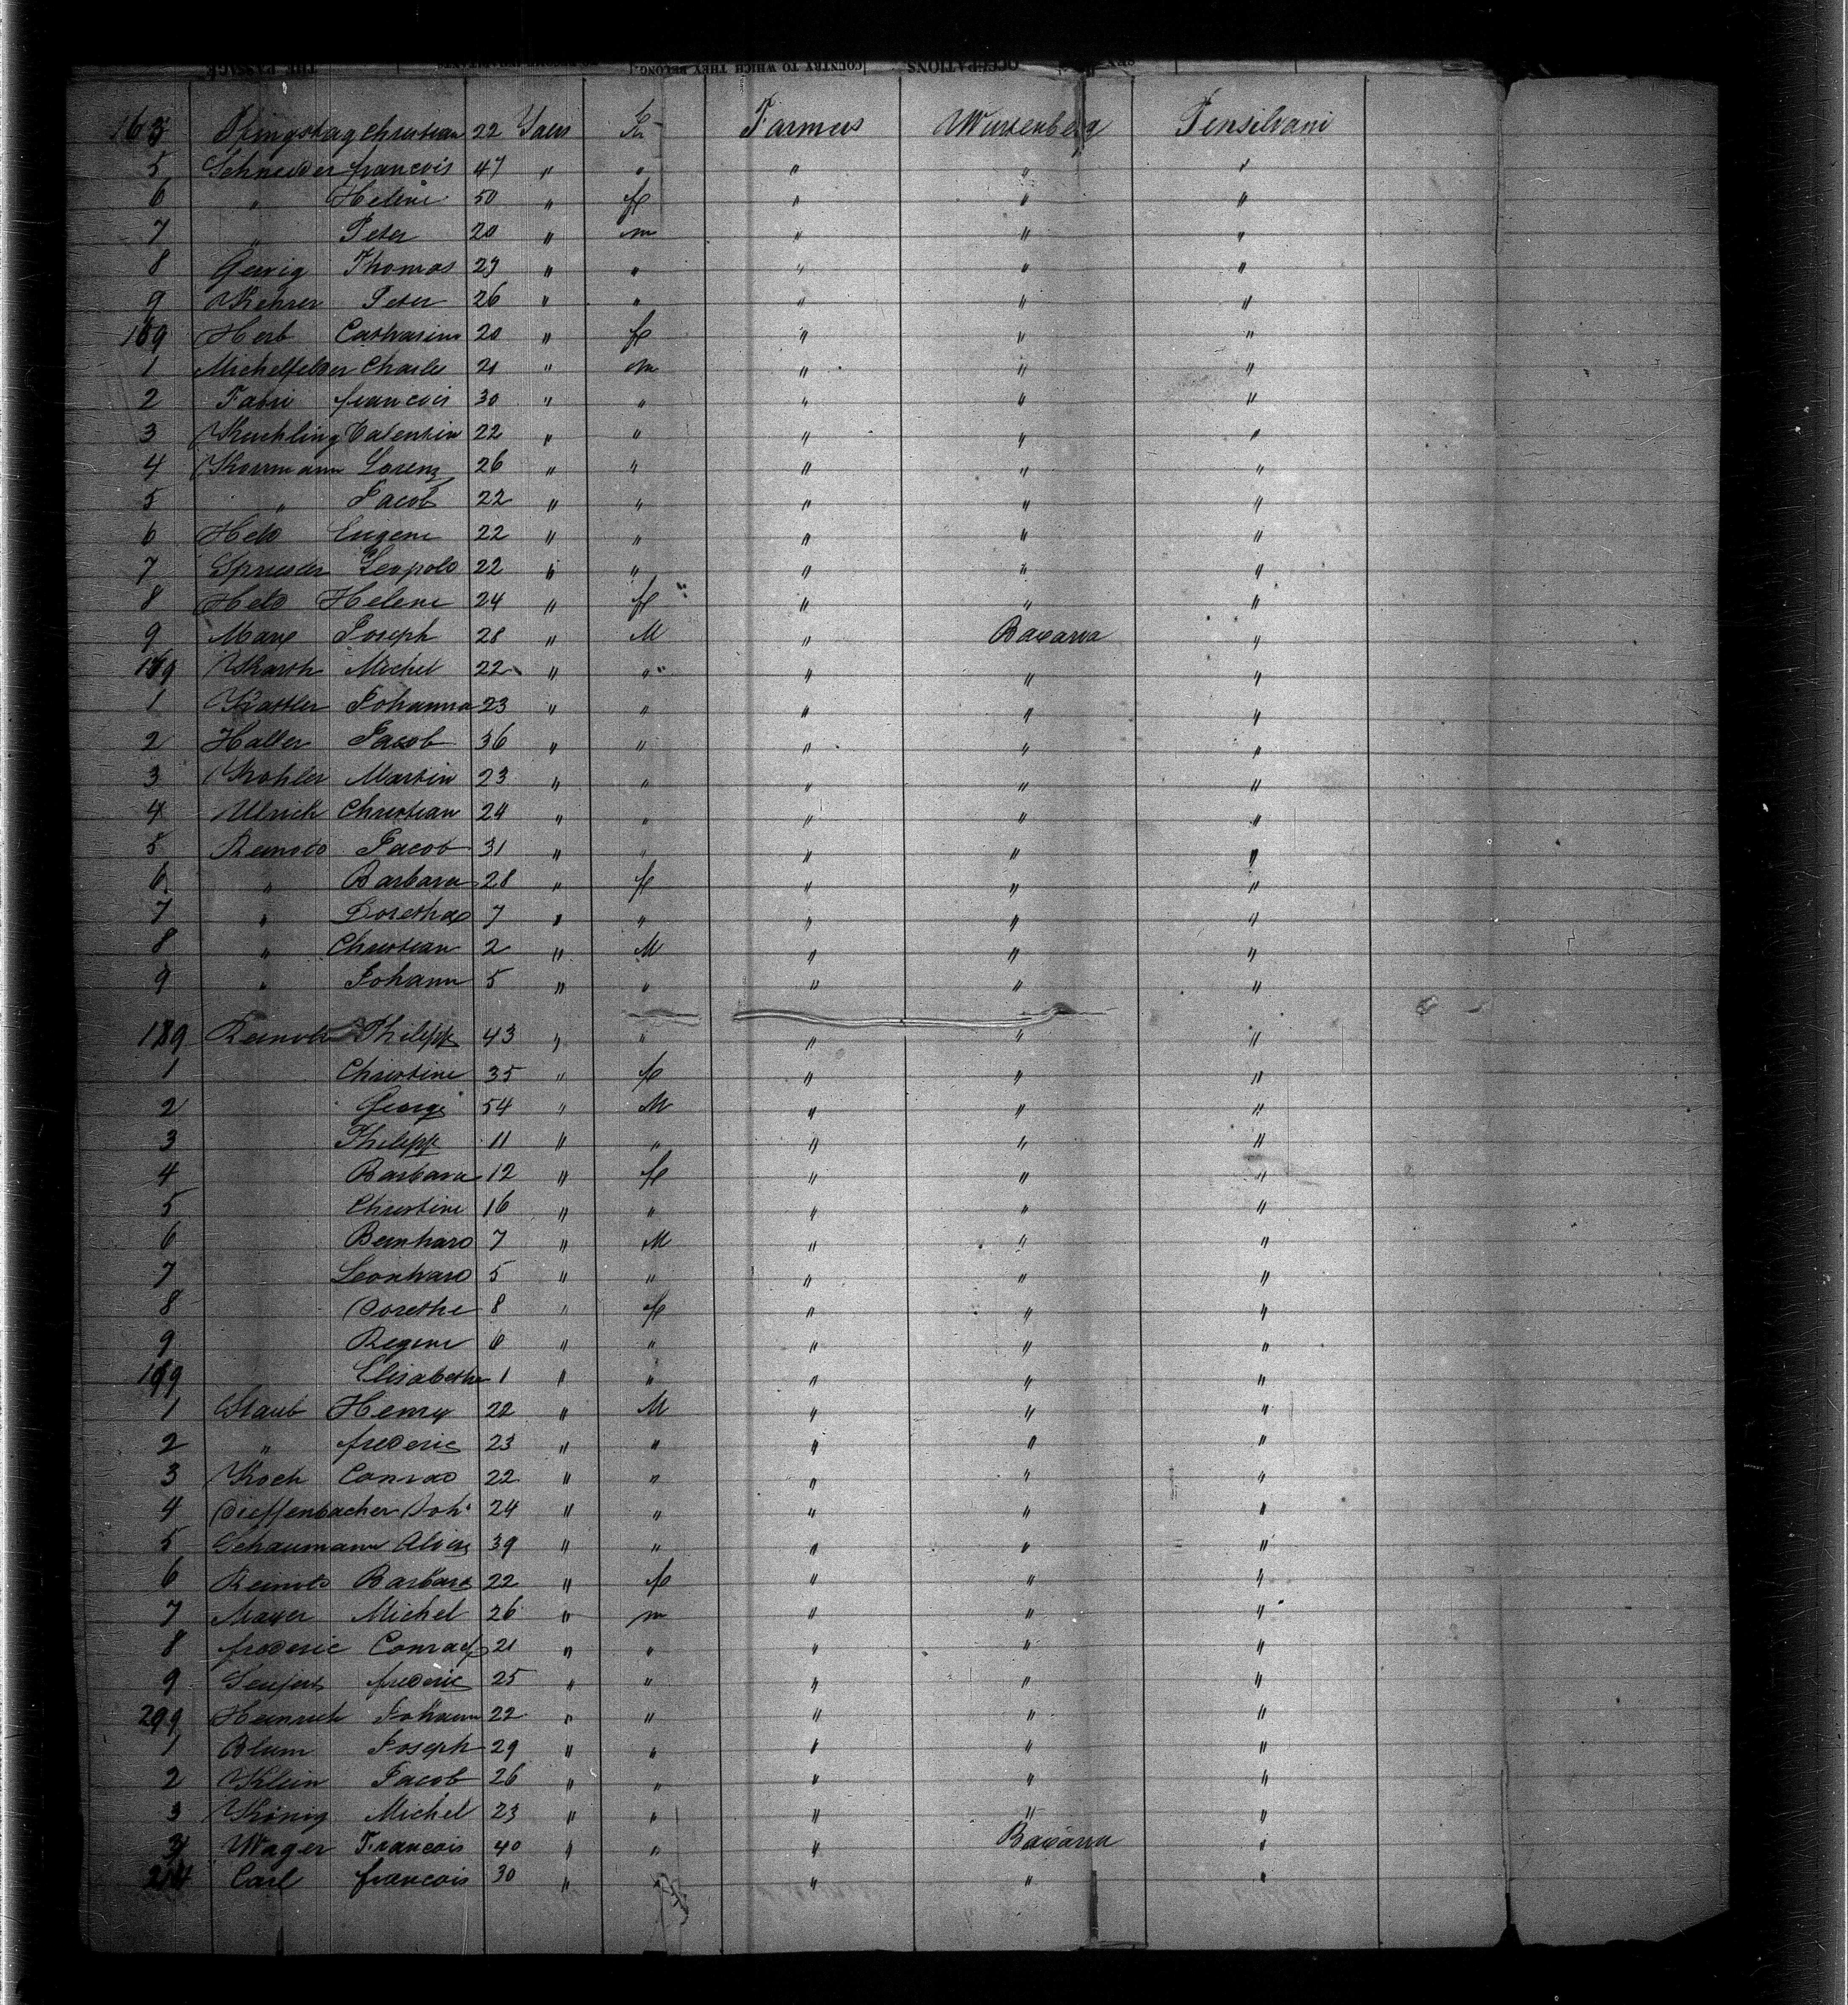 THE PASSAGE COUNTRY TO WHICH THEY BELONG. OCCUPATIONS SEX
165 Pfingstag Christian 22 Years Farmers Wurtenberg Pensilvani
5 Schneider francois 47 " " " " "
6 " Helene 50 " f " " "
7 " Peter 20 " m " " "
8 Gervig Thomas 27 " " " " "
9 Kehrer Peter 26 " " " " "
169 Herb Catharina 20 " f " " "
1 Michelfelder Charles 21 " m " " "
2 Fabri francois 30 " " " " "
3 Kuchling Valentin 22 " " " " "
4 Korrmann Lorenz 26 " " " " "
5 " Jacob 22 " " " " "
6 Held Eugene 22 " " " " "
7 Leopold 22 " " " " "
8 Held Helene 24 " f " " "
9 Marx Joseph 28 " M " Bavaria "
179 Karth Michel 22 " " " " "
1 Kastler Johanna 23 " " " " "
2 Haller Jacob 36 " " " " "
3 Kohler Martin 23 " " " " "
4 Ulrich Christian 24 " " " " "
5 Reinold Jacob 31 " " " " "
6 " Barbara 28 " f " " "
7 " Dorethae 7 " " " " "
8 " Christian 2 " M " " "
9 " Johann 5 " " " " "
189 Reinold Philipp 43 " " " " "
1 Christine 35 " f " " "
2 George 54 " M " " "
3 Philipp 11 " " " " "
4 Barbara 12 " f " " "
5 Christine 16 " " " " "
6 Bernhard 7 " M " " "
7 Leonhard 5 " " " " "
8 Dorethe 8 " f " " "
9 Regine 6 " " " " "
199 Elisabethe 1 " " " " "
1 Staub Henry 22 " M " " "
2 " frederic 23 " " " " "
3 Koch Conrad 22 " " " " "
4 Dieffenbacher Joh. 24 " " " " "
5 Schaumann 39 " " " " "
6 Reinold Barbara 22 " f " " "
7 Mayer Michel 26 " m " " "
8 frederic Conrad 21 " " " " "
9 Seufert frederic 25 " " " " "
299 Heinrich Johann 22 " " " " "
1 Blum Joseph 29 " " " " "
2 Klein Jacob 26 " " " " "
3 König Michel 23 " " " " "
4 Wager Francois 40 " " " Bavaria "
214 Carl francois 30 " " " " "